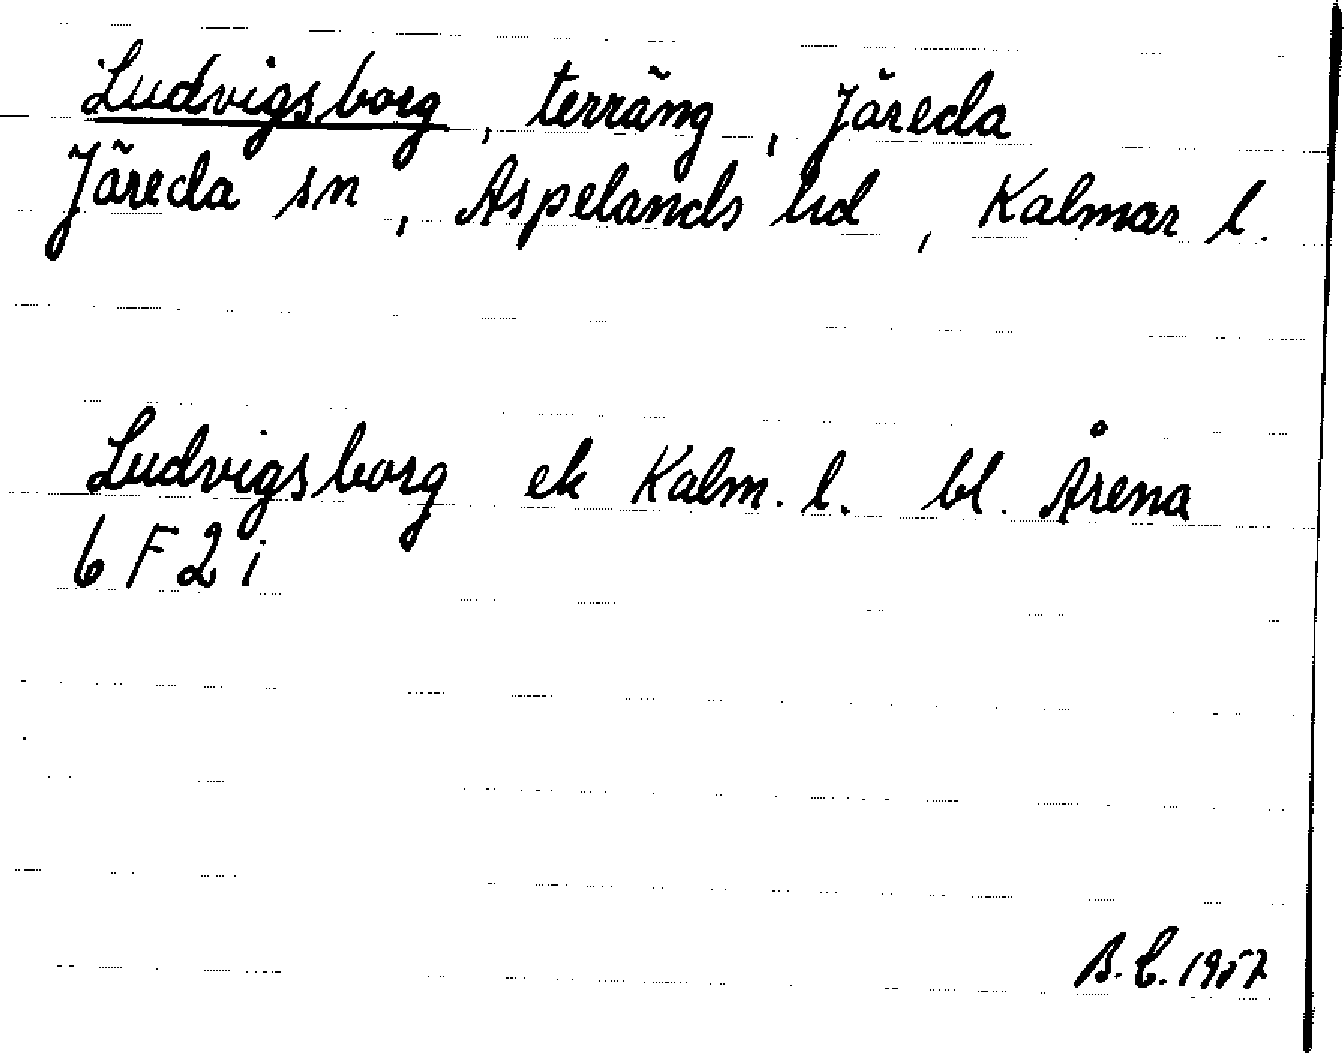 Ludvigsborg, terräng, Järeda
Järeda sn, Aspelands hd, Kalmar l.
Ludvigsborg ek Kalm. l. bl. Årena
6 F 2 i
B. C. 1957